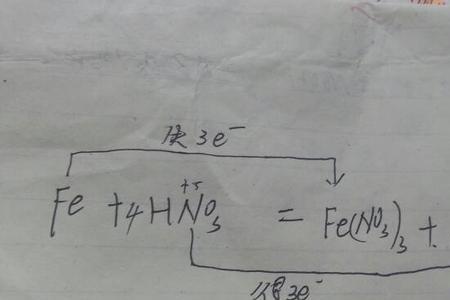 失3e⁻
+5
Fe + 4HNO₃ = Fe(NO₃)₃ +
得3e⁻